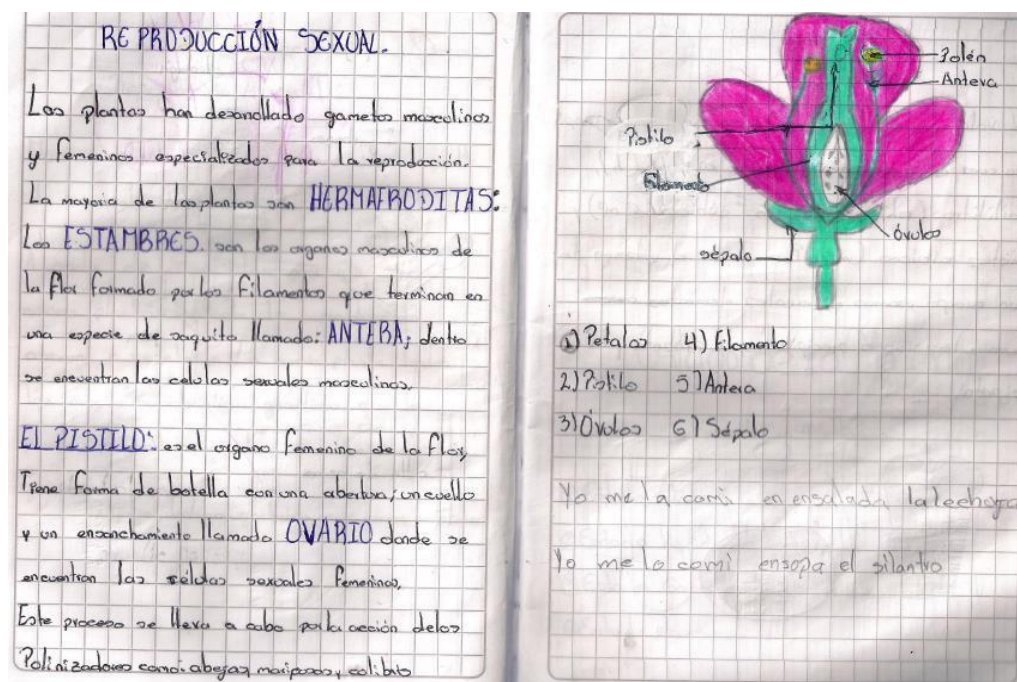 REPRODUCCIÓN SEXUAL.
Las plantas han desarrollado gametos masculinos
y femeninos especializados para la reproducción.
La mayoria de las plantas son HERMAFRODITAS:
Los ESTAMBRES. son los organos masculinos de
la flor formado por los filamentos que terminan en
una especie de saquito llamado: ANTERA; dentro
se encuentran las celulas sexuales masculinas.
EL PISTILO: es el organo femenino de la flor,
Tiene forma de botella con una abertura; un cuello
y un ensanchamiento llamado OVARIO donde se
encuentran las células sexuales femeninas,
Este proceso se lleva a cabo por la acción de los
Polinizadores como: abejas, mariposas, colibrís
Polén
Antera
Pistilo
Filamento
óvulos
sépalo
1) Petalos 4) Filamento
2) Pistilo 5) Antera
3) Óvulos 6) Sépalo
Yo me la comi en ensalada la lechuga
Yo me lo comi ensopa el silantro